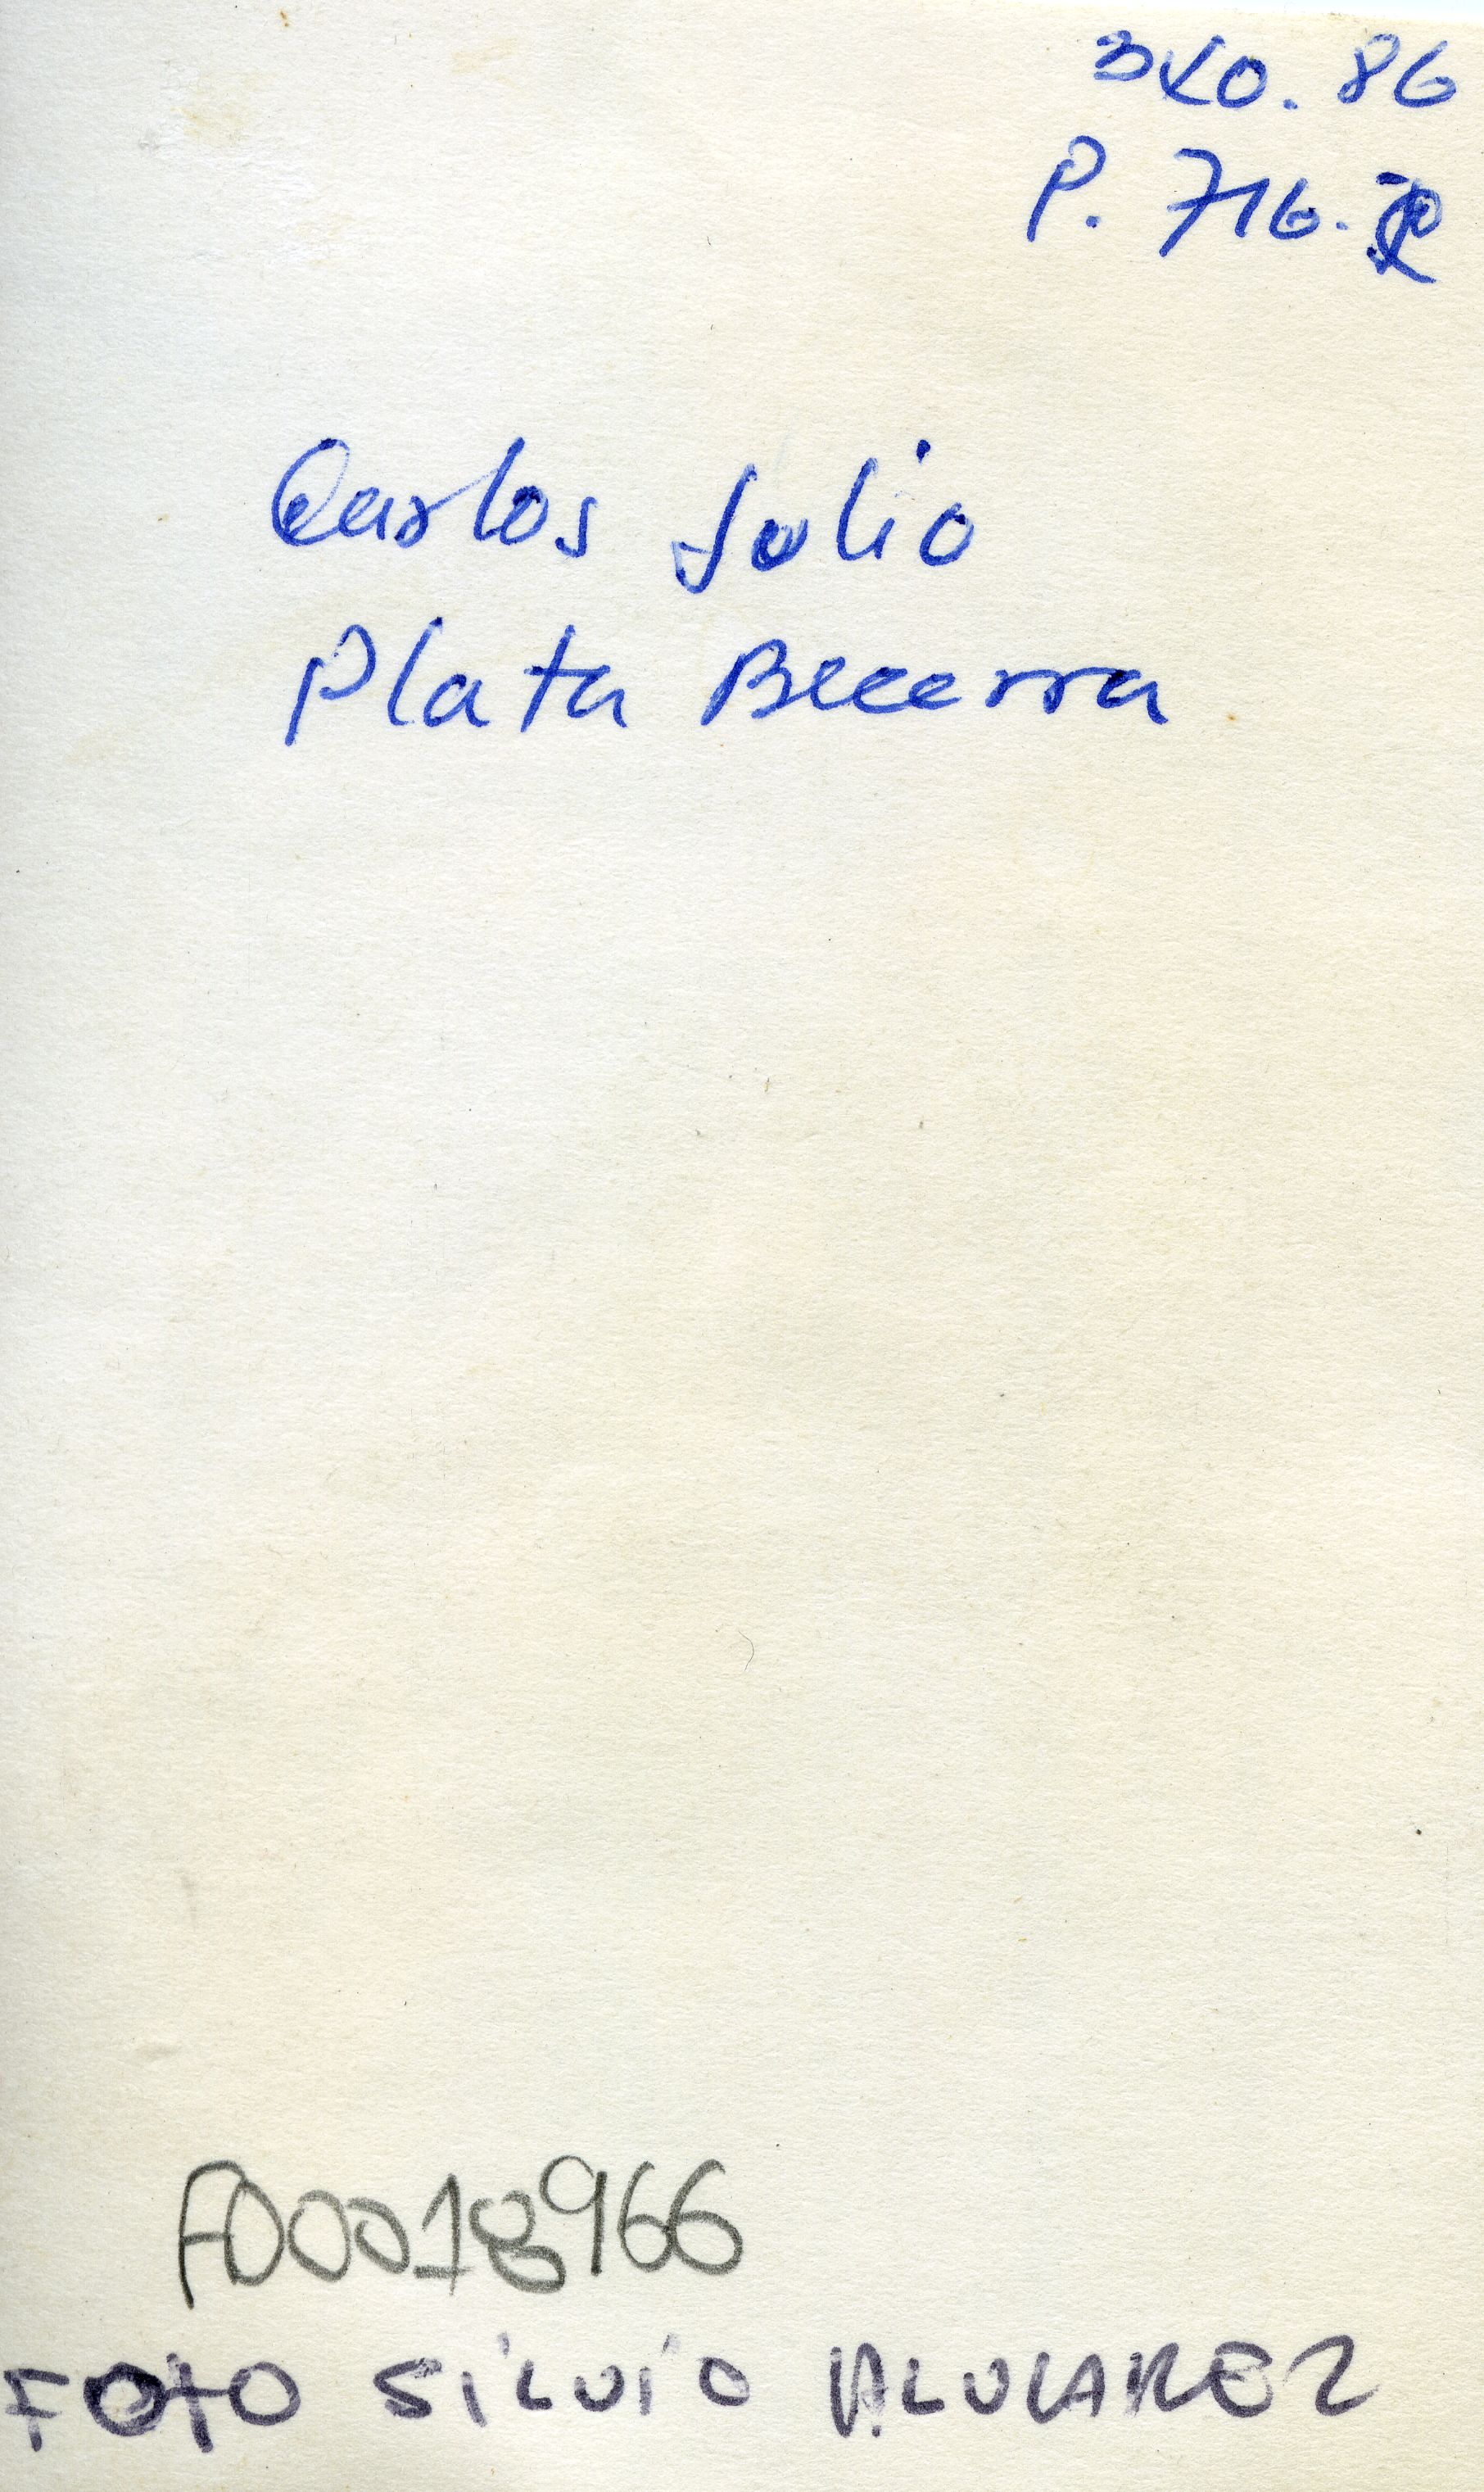 3X0. 86
P. 716.
Carlos Julio
Plata Becerra
F00018966
FOTO SILVIO ALVAREZ